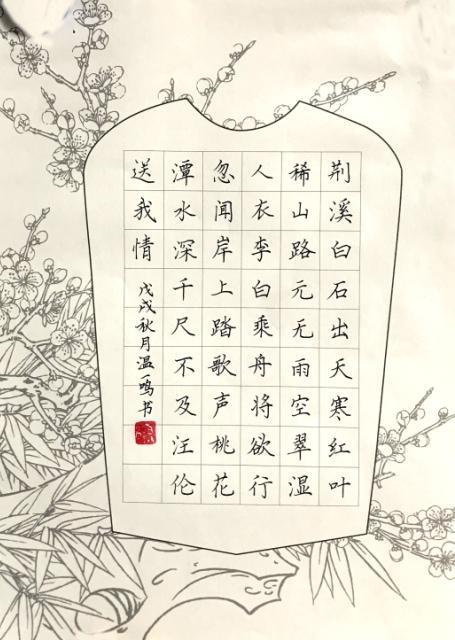 荆溪白石出天寒红叶
稀山路元无雨空翠湿
人衣李白乘舟将欲行
忽闻岸上踏歌声桃花
潭水深千尺不及汪伦
送我情
戊戌秋月温一鸣书